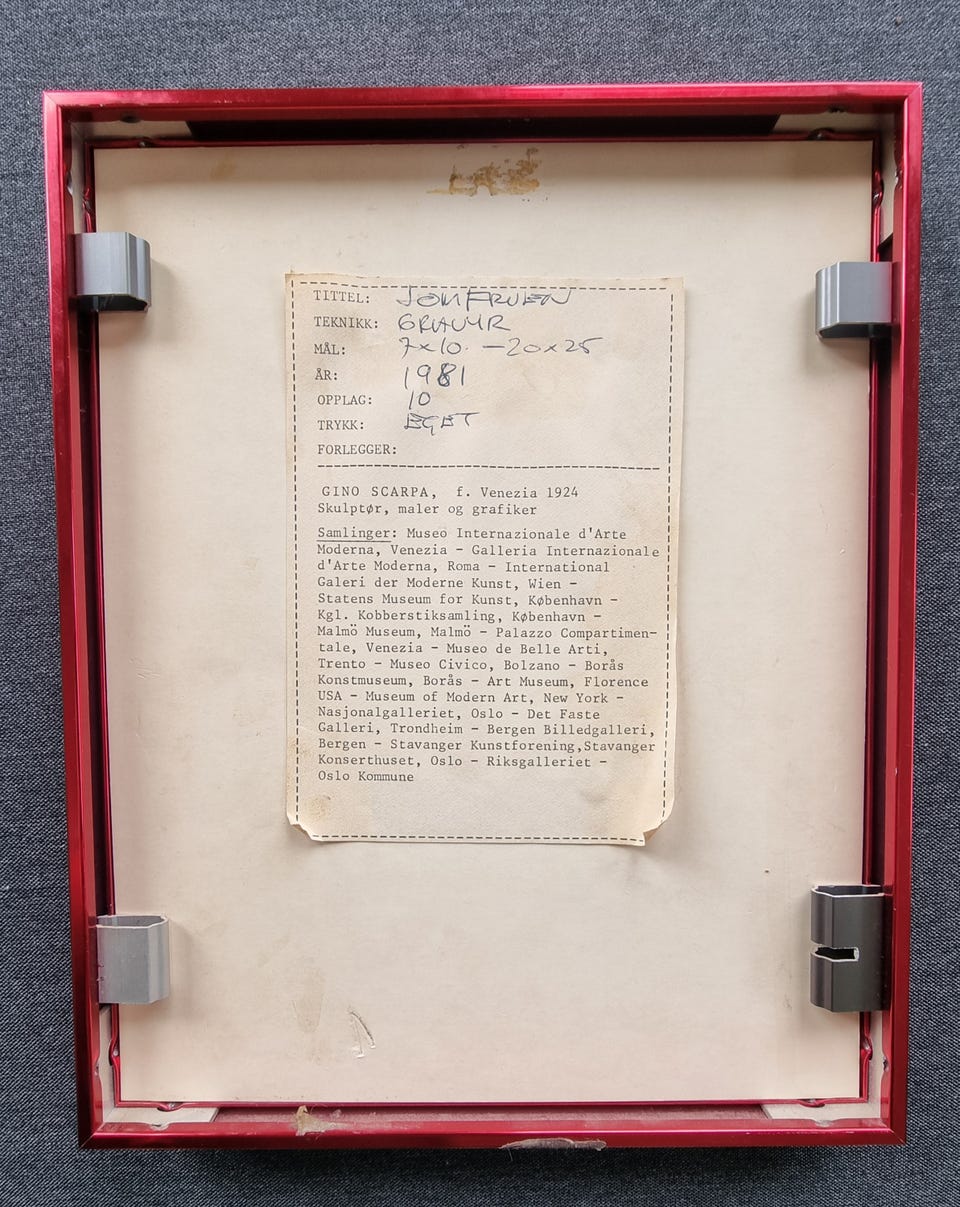 TITTEL: JOMFRUEN
TEKNIKK: GRAVYR
MÅL: 7x10. - 20x25
ÅR: 1981
OPPLAG: 10
TRYKK: EGET
FORLEGGER:
GINO SCARPA, f. Venezia 1924
Skulptør, maler og grafiker
Samlinger: Museo Internazionale d'Arte
Moderna, Venezia - Galleria Internazionale
d'Arte Moderna, Roma - International
Galeri der Moderne Kunst, Wien -
Statens Museum for Kunst, København -
Kgl. Kobberstiksamling, København -
Malmö Museum, Malmö - Palazzo Compartimen-
tale, Venezia - Museo de Belle Arti,
Trento - Museo Civico, Bolzano - Borås
Konstmuseum, Borås - Art Museum, Florence
USA - Museum of Modern Art, New York -
Nasjonalgalleriet, Oslo - Det Faste
Galleri, Trondheim - Bergen Billedgalleri,
Bergen - Stavanger Kunstforening,Stavanger
Konserthuset, Oslo - Riksgalleriet -
Oslo Kommune